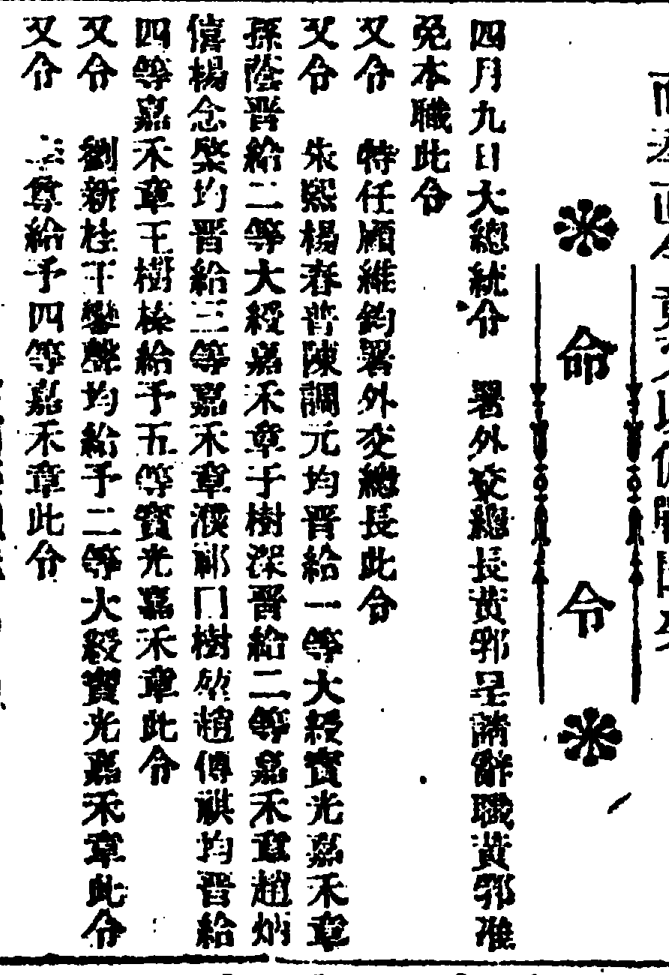 命令
四月九日大總統令　署外交總長黃郛呈請辭職黃郛准
免本職此令
又令　特任顧維鈞署外交總長此令
又令　朱熙楊春普陳調元均晉給一等大綬寶光嘉禾章
孫蔭晉給二等大綬嘉禾章于樹深晉給二等嘉禾章趙炳
僖楊念槃均晉給三等嘉禾章濮 樹 趙傅祺均晉給
四等嘉禾章王樹榛給予五等寶光嘉禾章此令
又令　劉新桂王鑾聲均給予二等大綬寶光嘉禾章此令
又令　尊給予四等嘉禾章此令